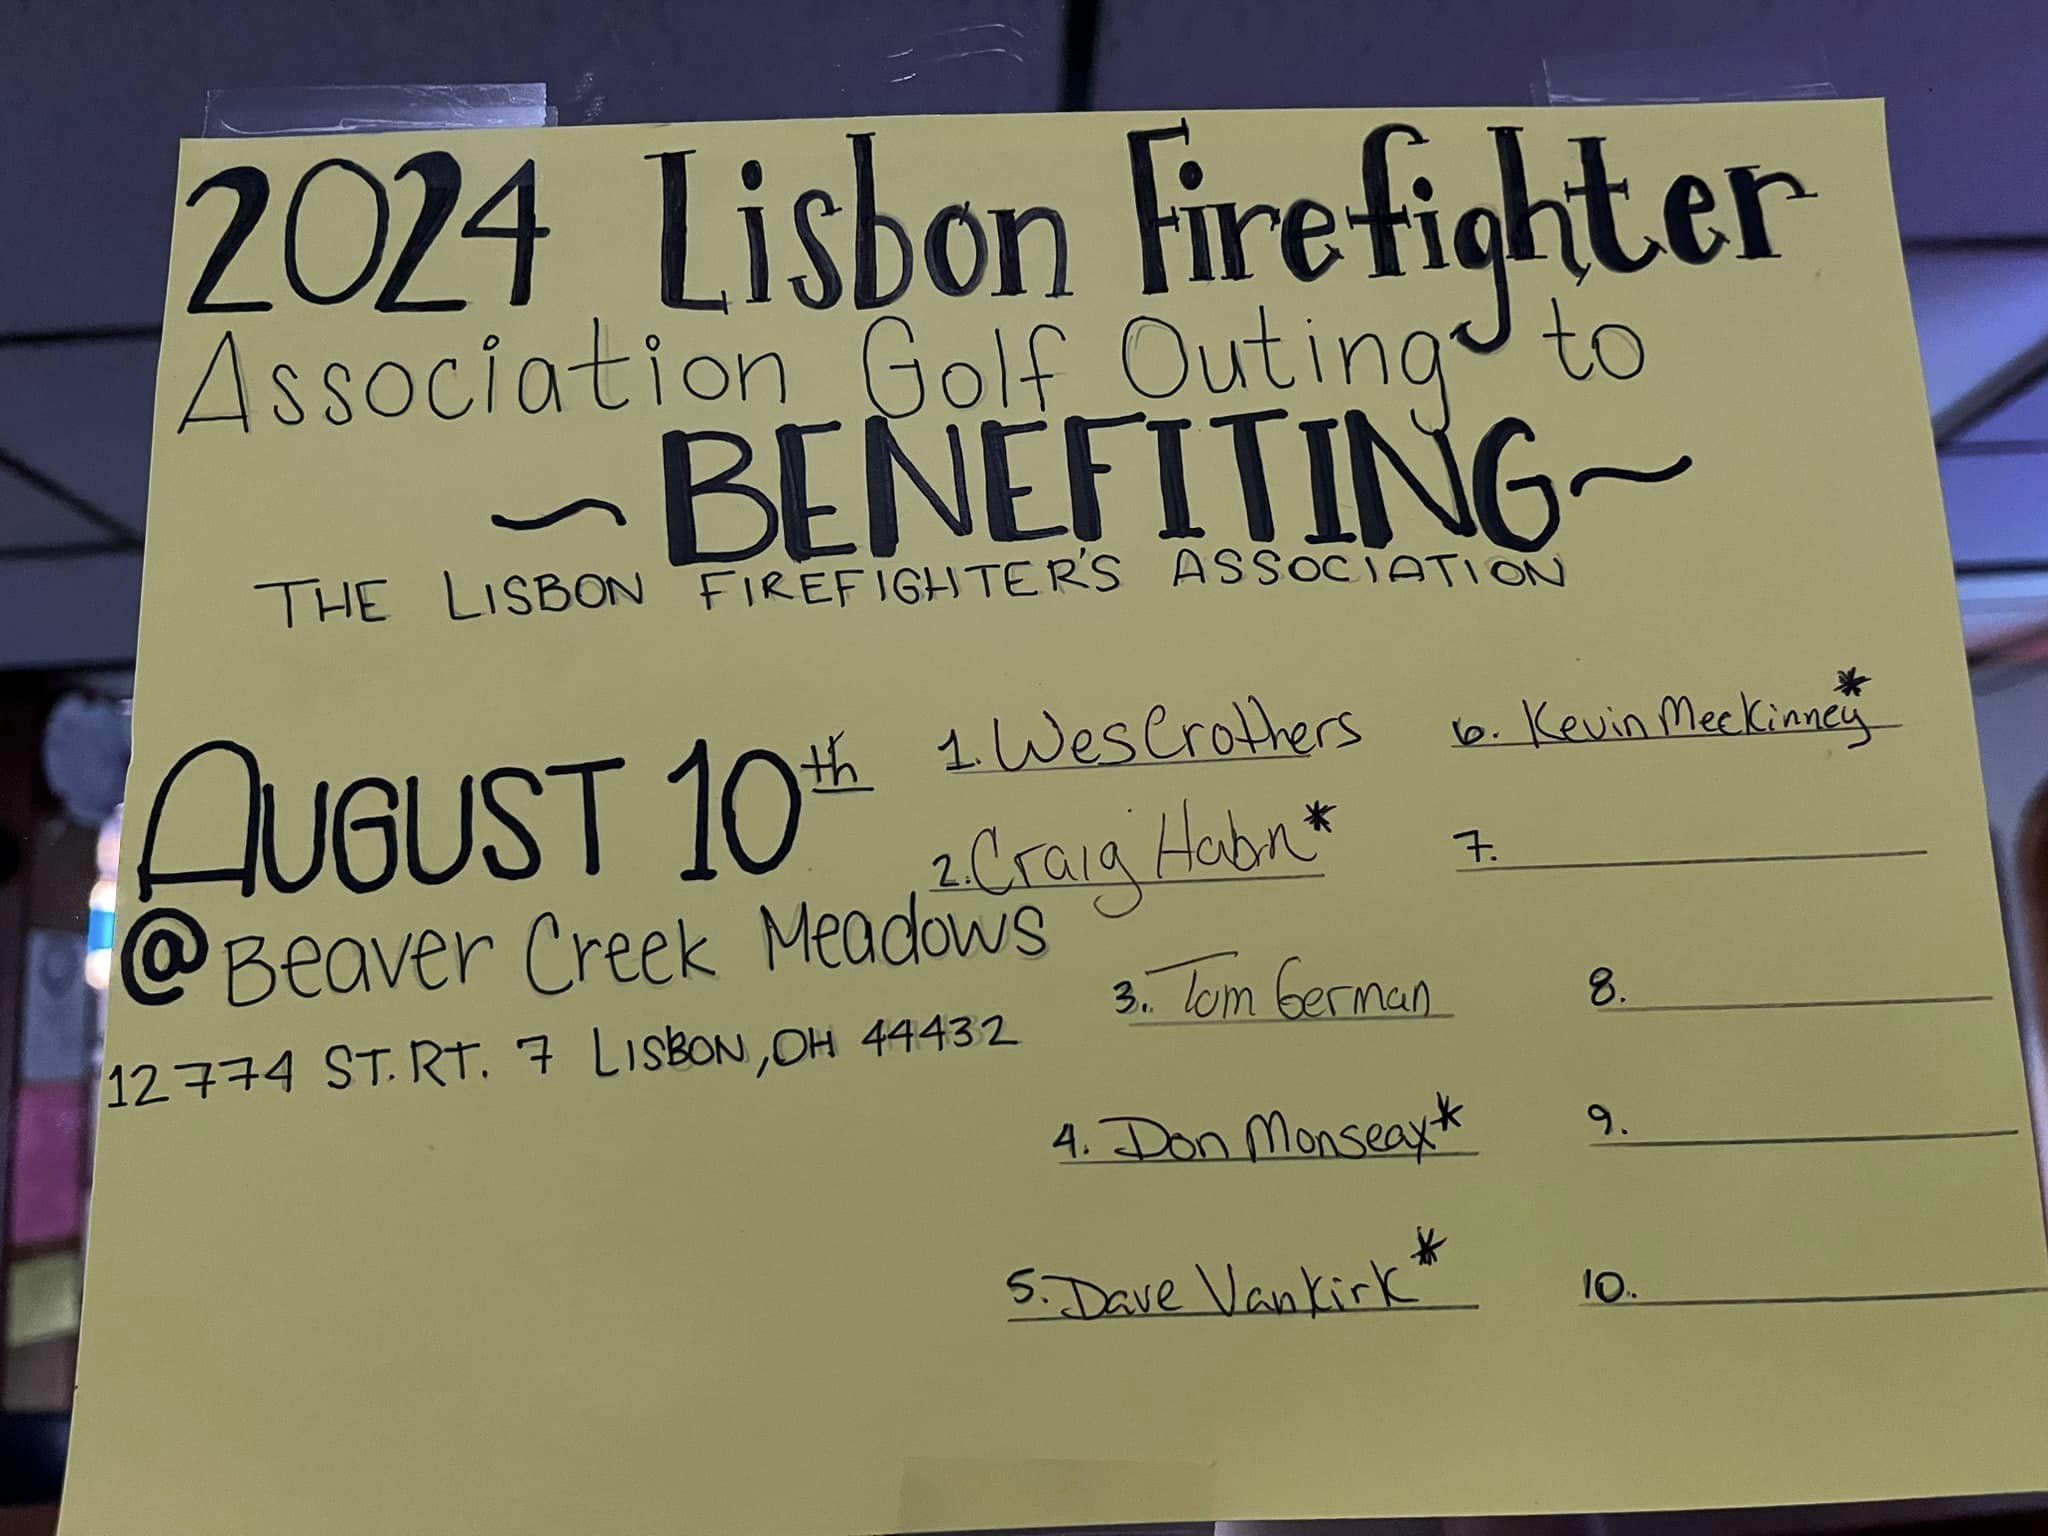 2024 Lisbon Firefighter
Association Golf Outing to
~BENEFITING~
THE LISBON FIREFIGHTER'S ASSOCIATION
AUGUST 10th
@ Beaver Creek Meadows
12774 ST. RT. 7 LISBON, OH 44432
1. Wes Crothers
2. Craig Hahn*
3. Tom German
4. Don Monseax*
5. Dave Vankirk*
6. Kevin Meckinney*
7.
8.
9.
10.